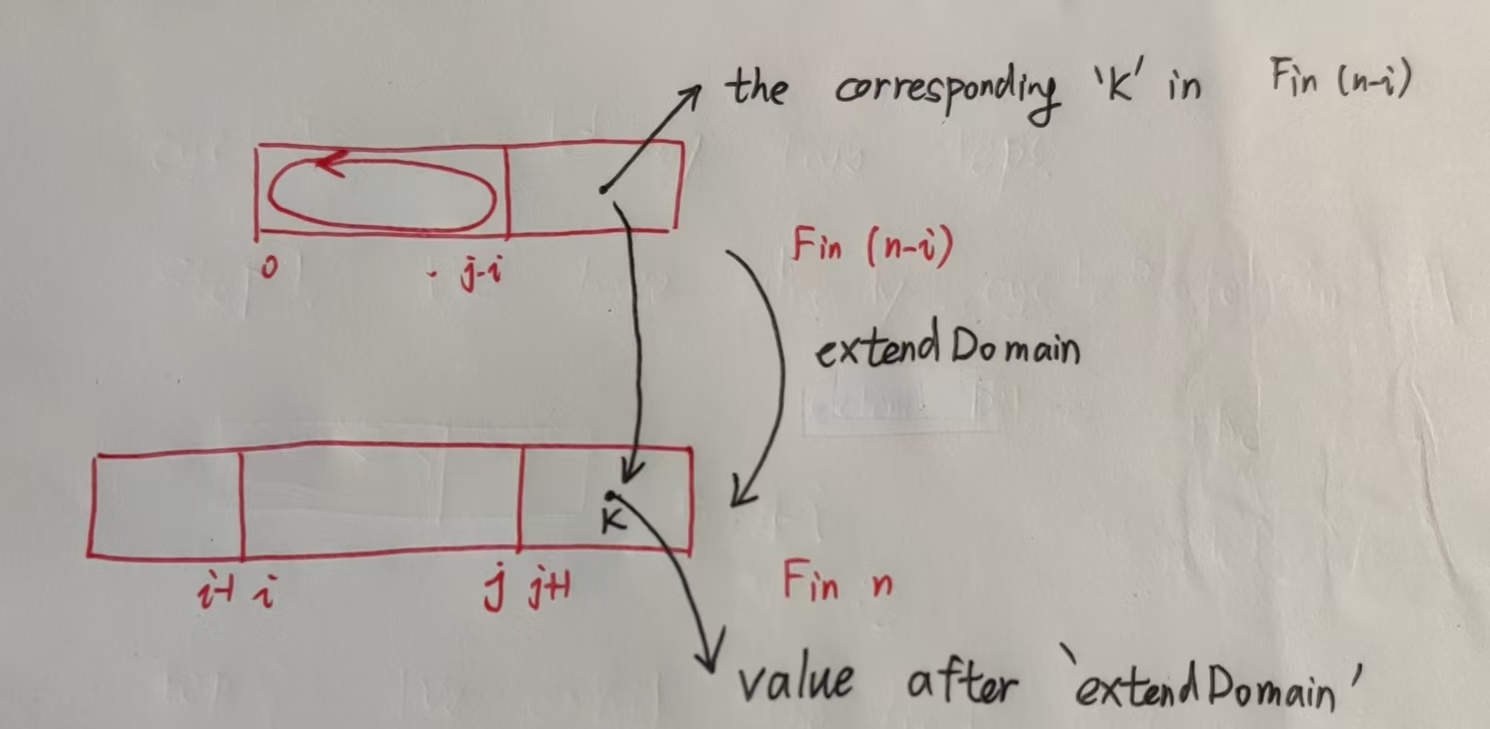 the corresponding 'K' in Fin (n-i)
0 j-i
Fin (n-i)
extendDomain
K
i-1 i j j+1
Fin n
value after `extendDomain'